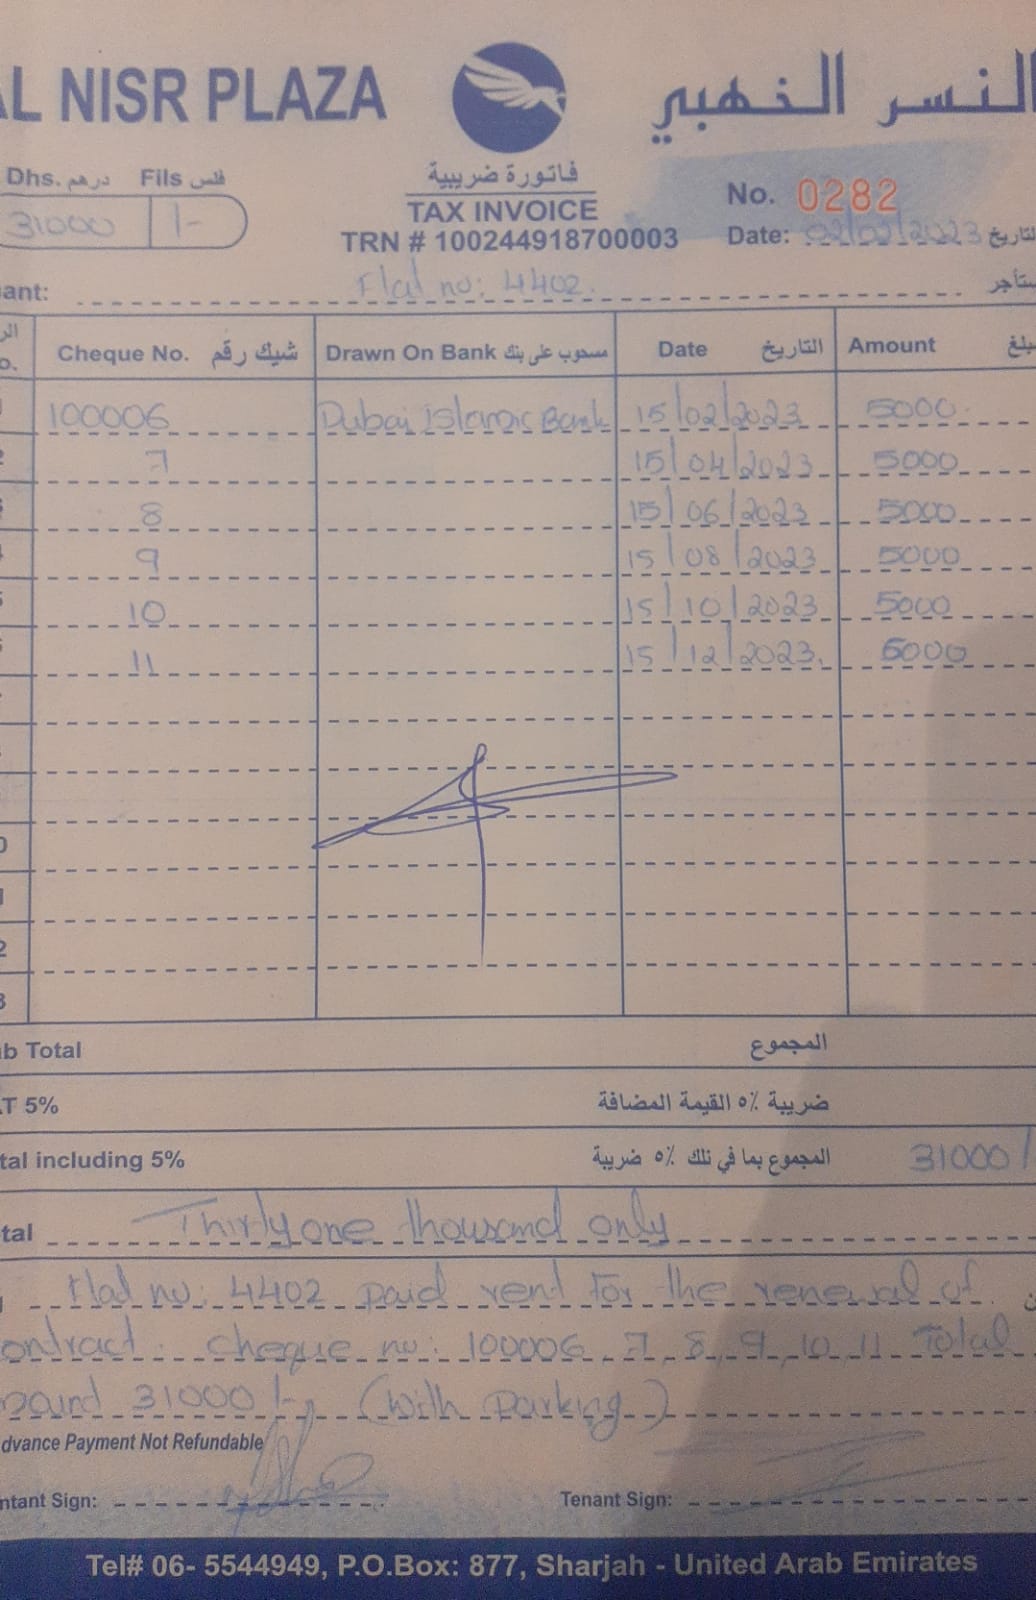 AL NISR PLAZA
النسر الذهبي
Dhs. درهم Fils فلس
31000 /-
فاتورة ضريبية
TAX INVOICE
TRN # 100244918700003
No. 0282
Date: 02/02/2023 التاريخ
ant: Flat no: 4402. ستأجر
Cheque No. شيك رقم Drawn On Bank مسحوب على بنك Date التاريخ Amount مبلغ
100006 Dubai islamic Bank 15/02/2023 5000
7 15/04/2023 5000
8 15/06/2023 5000
9 15/08/2023 5000
10 15/10/2023 5000
11 15/12/2023. 6000
b Total المجموع
T 5% ضريبة ٥٪ القيمة المضافة
tal including 5% المجموع بما في ذلك ٥٪ ضريبة 31000/
tal Thirty one thousand only
Flat no: 4402 paid rent for the renewal of
ontract. cheque no: 100006, 7, 8, 9, 10, 11 Total
31000/- (with parking)
dvance Payment Not Refundable
ntant Sign: Tenant Sign:
Tel# 06- 5544949, P.O.Box: 877, Sharjah - United Arab Emirates